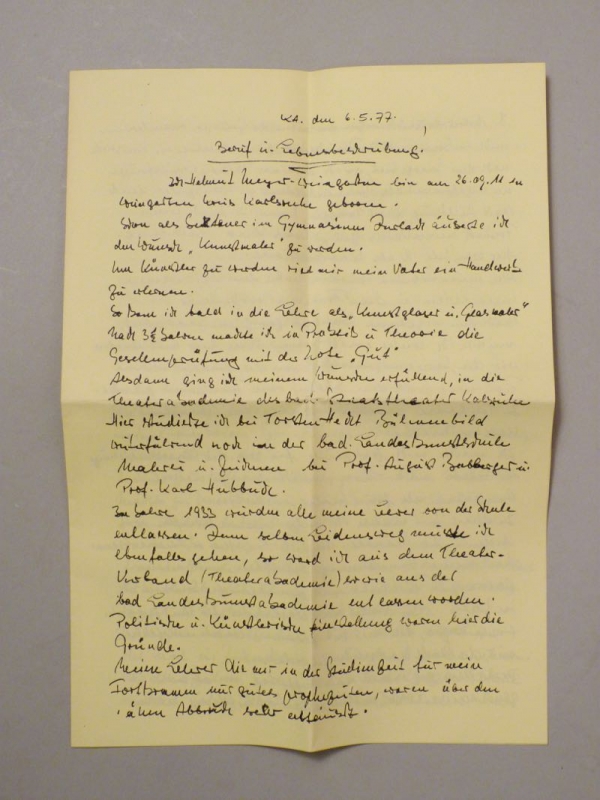 KA. den 6.5.77.
Beruf u. Lebensbeschreibung!
Ich Helmut Meyer-Weingarten bin am 26.09.11 in
Weingarten Kreis Karlsruhe geboren.
Schon als Sextaner im Gymnasium Durlach äuserte ich
den Wunsch „Kunstmaler" zu werden.
Um Künstler zu werden riet mir mein Vater ein Handwerk
zu erlernen.
So kam ich bald in die Lehre als „Kunstglaser u. Glasmaler"
Nach 3½ Jahren machte ich in Praksis u Theorie die
Gesellenprüfung mit der Note „Gut"
Alsdann ging ich meinem Wunsche erfüllend, in die
Theaterakademie des bad. Staatstheater Kalsruhe
Hier studierte ich bei Torsten Hecht Bühnenbild
weiterführend noch in der bad. Landeskunstschule
Malerei u. Zeichnen bei Prof. August Babberger u.
Prof. Karl Hubbuch.
Im Jahre 1933 wurden alle meine Lerer von der Schule
entlassen. Denn selben Leidensweg musste ich
ebenfalles gehen, so ward ich aus dem Theater-
Verband (Theaterakademie) sowie aus der
bad Landeskunstakademie entlassen worden.
Politische u. Künstlerische Einstellung waren hier die
Gründe.
Meine Lehrer die mir in der Studienzeit für mein
Fortkommen nur gutes prophezeiten, waren über den
Abbruch sehr enttäuscht.